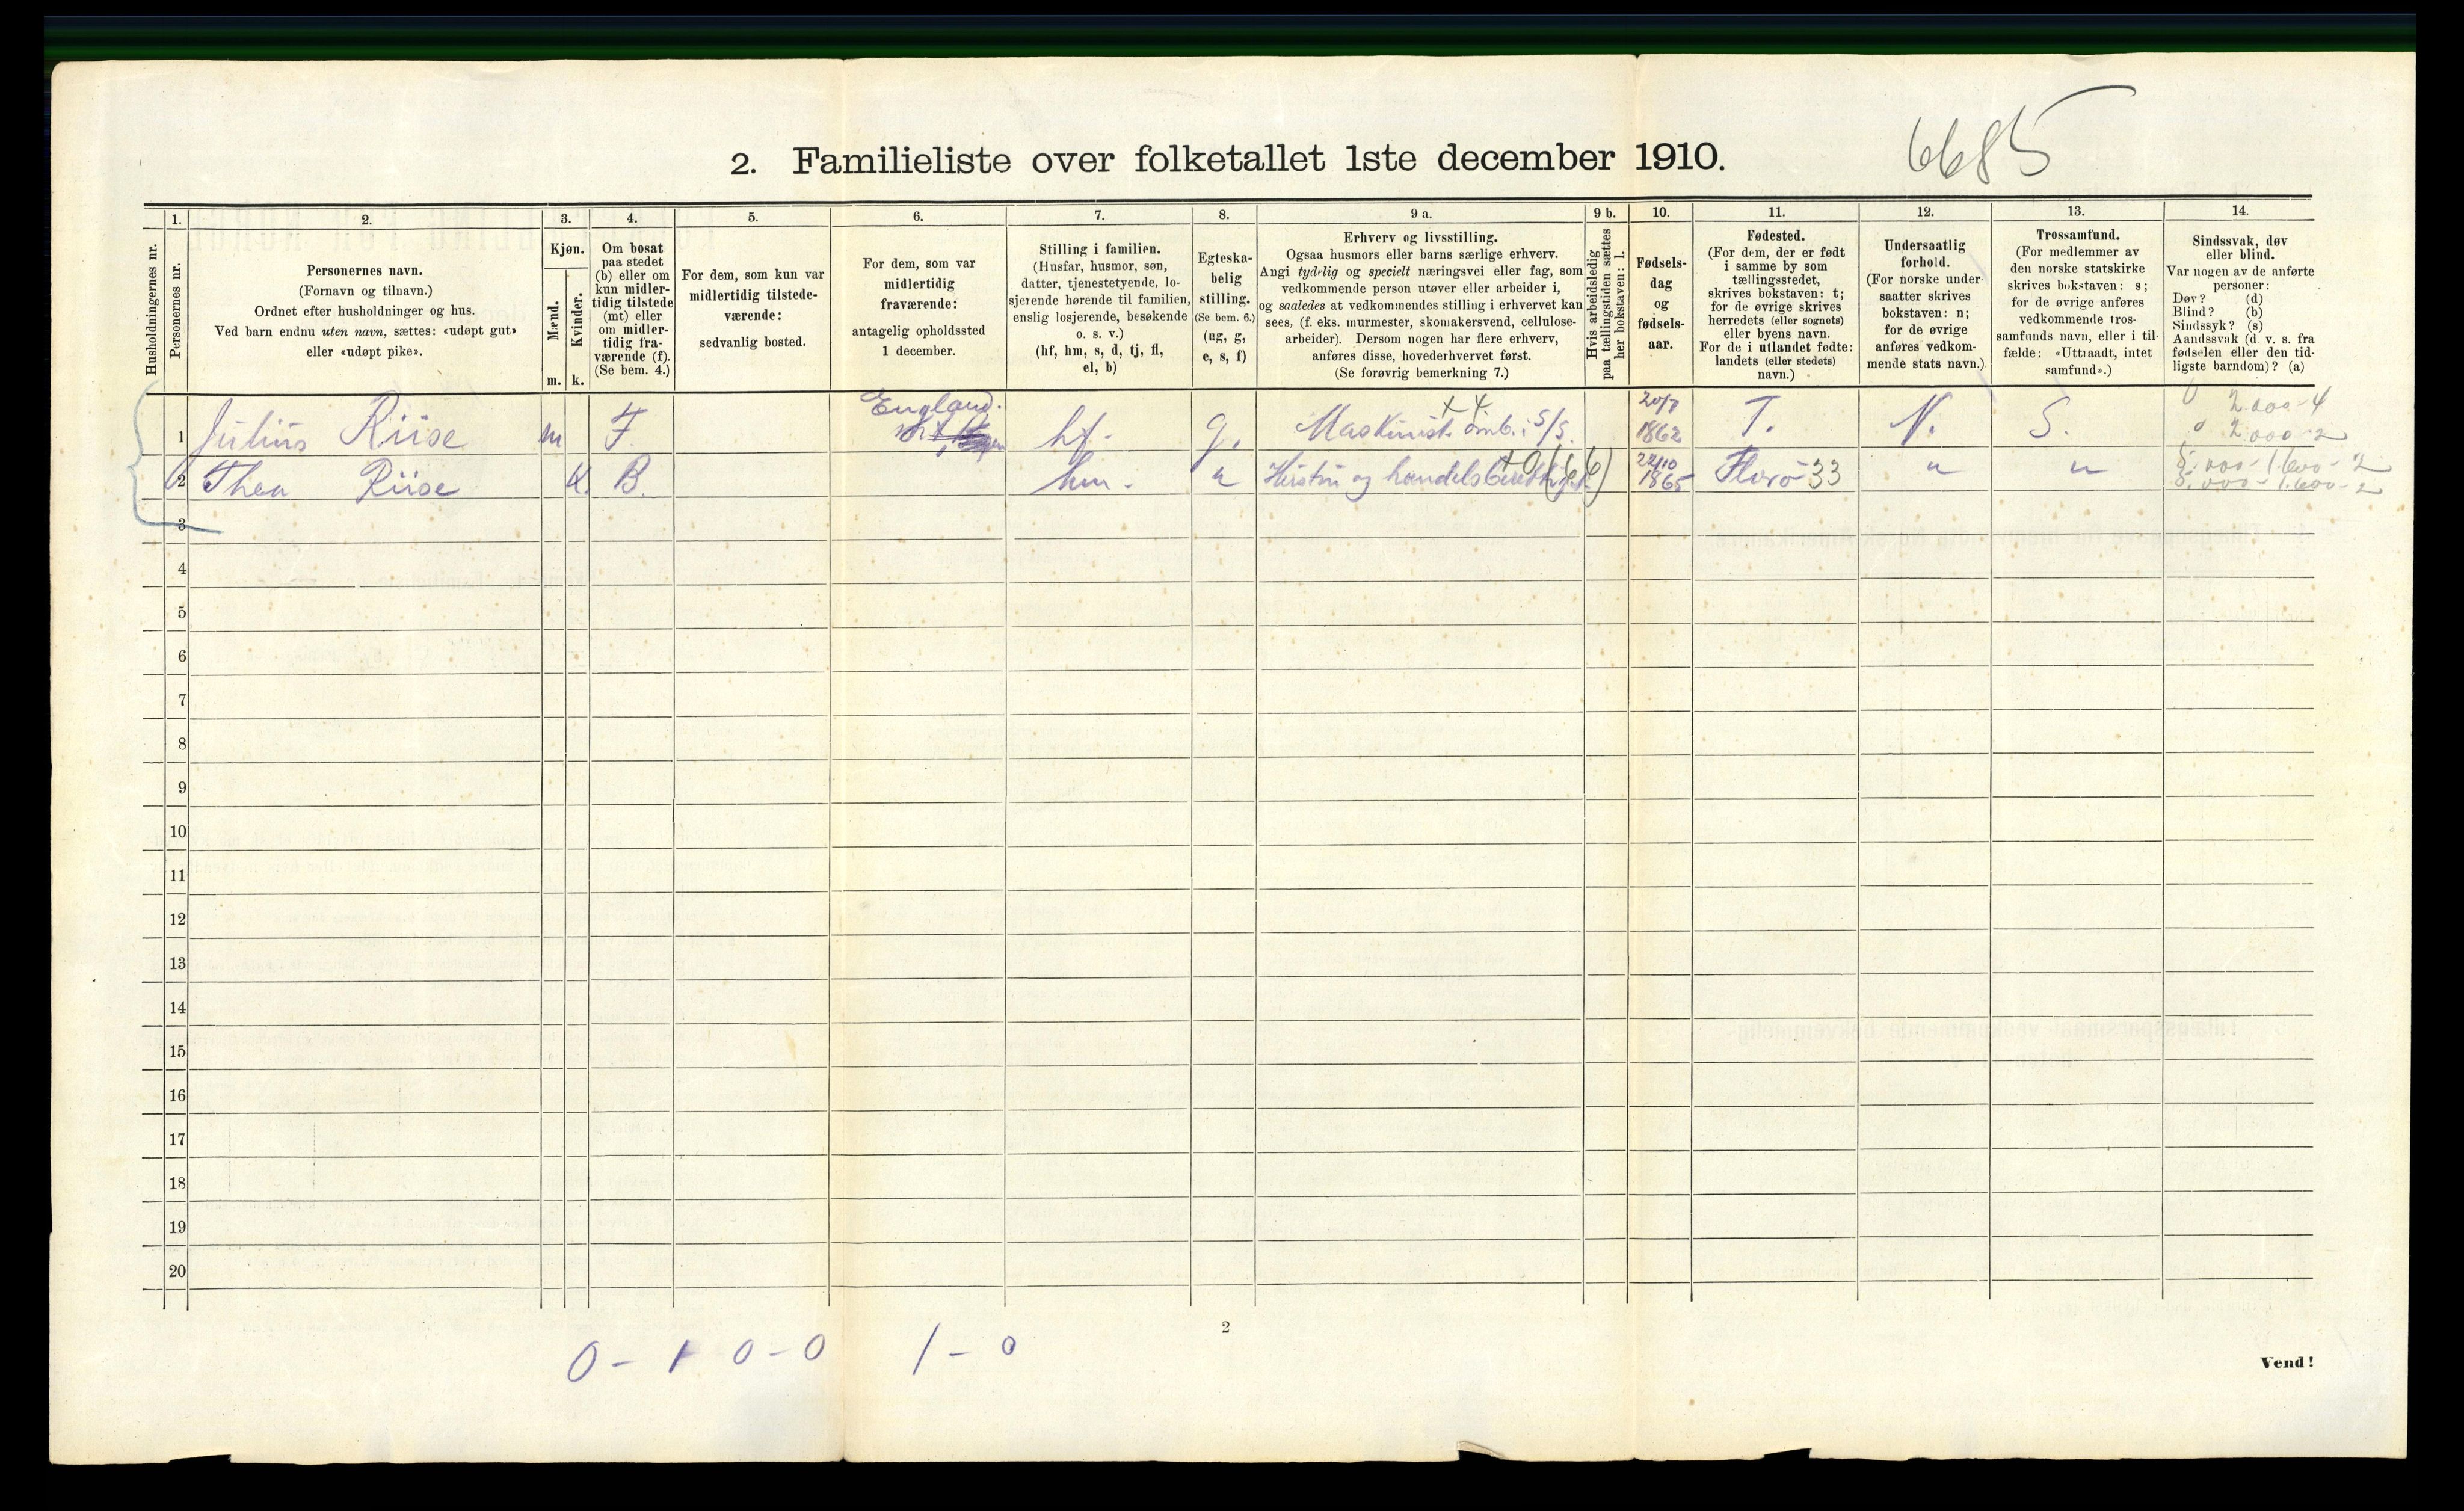 6685
2. Familieliste over folketallet 1ste december 1910.
Husholdningernes nr.
1.
Personernes nr.
2.
Personernes navn.
(Fornavn og tilnavn.)
Ordnet efter husholdninger og hus.
Ved barn endnu uten navn, sættes: «udøpt gut»
eller «udøpt pike».
3.
Kjøn.
Mænd.
Kvinder.
m. k.
4.
Om bosat
paa stedet
(b) eller om
kun midler-
tidig tilstede
(mt) eller
om midler-
tidig fra-
værende (f).
(Se bem. 4.)
5.
For dem, som kun var
midlertidig tilstede-
værende:
sedvanlig bosted.
6.
For dem, som var
midlertidig
fraværende:
antagelig opholdssted
1 december.
7.
Stilling i familien.
(Husfar, husmor, søn,
datter, tjenestetyende, lo-
sjerende hørende til familien,
enslig losjerende, besøkende
o. s. v.)
(hf, hm, s, d, tj, fl,
el, b)
8.
Egteska-
belig
stilling.
(Se bem. 6.)
(ug, g,
e, s, f)
9 a.
Erhverv og livsstilling.
Ogsaa husmors eller barns særlige erhverv.
Angi tydelig og specielt næringsvei eller fag, som
vedkommende person utøver eller arbeider i,
og saaledes at vedkommendes stilling i erhvervet kan
sees, (f. eks. murmester, skomakersvend, cellulose-
arbeider). Dersom nogen har flere erhverv,
anføres disse, hovederhvervet først.
(Se forøvrig bemerkning 7.)
9 b.
Hvis arbeidsledig
paa tællingstiden sættes
her bokstaven: l.
10.
Fødsels-
dag
og
fødsels-
aar.
11.
Fødested.
(For dem, der er født
i samme by som
tællingsstedet,
skrives bokstaven: t;
for de øvrige skrives
herredets (eller sognets)
eller byens navn.
For de i utlandet fødte:
landets (eller stedets)
navn.)
12.
Undersaatlig
forhold.
(For norske under-
saatter skrives
bokstaven: n;
for de øvrige
anføres vedkom-
mende stats navn.)
13.
Trossamfund.
(For medlemmer av
den norske statskirke
skrives bokstaven: s;
for de øvrige anføres
vedkommende tros-
samfunds navn, eller i til-
fælde: «Uttraadt, intet
samfund».)
14.
Sindssvak, døv
eller blind.
Var nogen av de anførte
personer:
Døv? (d)
Blind? (b)
Sindssyk? (s)
Aandssvak (d. v. s. fra
fødselen eller den tid-
ligste barndom)? (a)
1 Julius Riise m F. England. hf. g. Maskinist omb. i S/S. x 4 20/7 1862 T. N. S. 0 2.000-4
0 2.000-2
2 Thea Riise K. B. hm. " og handels 1865 Florö 33 " " 5.000-1.600-2
5.000-1.600-2
3
4
5
6
7
8
9
10
11
12
13
14
15
16
17
18
19
20
2
0 - 1 0 - 0 1 - 0
Vend!